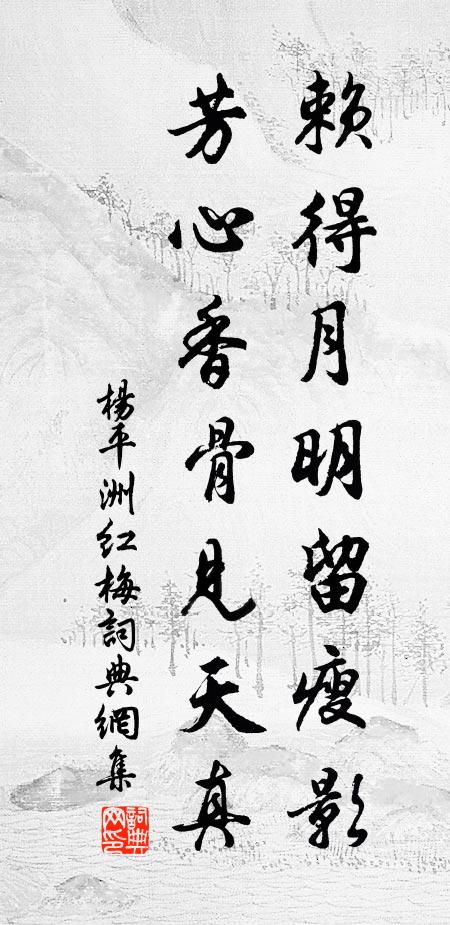 赖得月明留瘦影
芳心香骨见天真
楊平洲红梅詞典網集
詞典網印